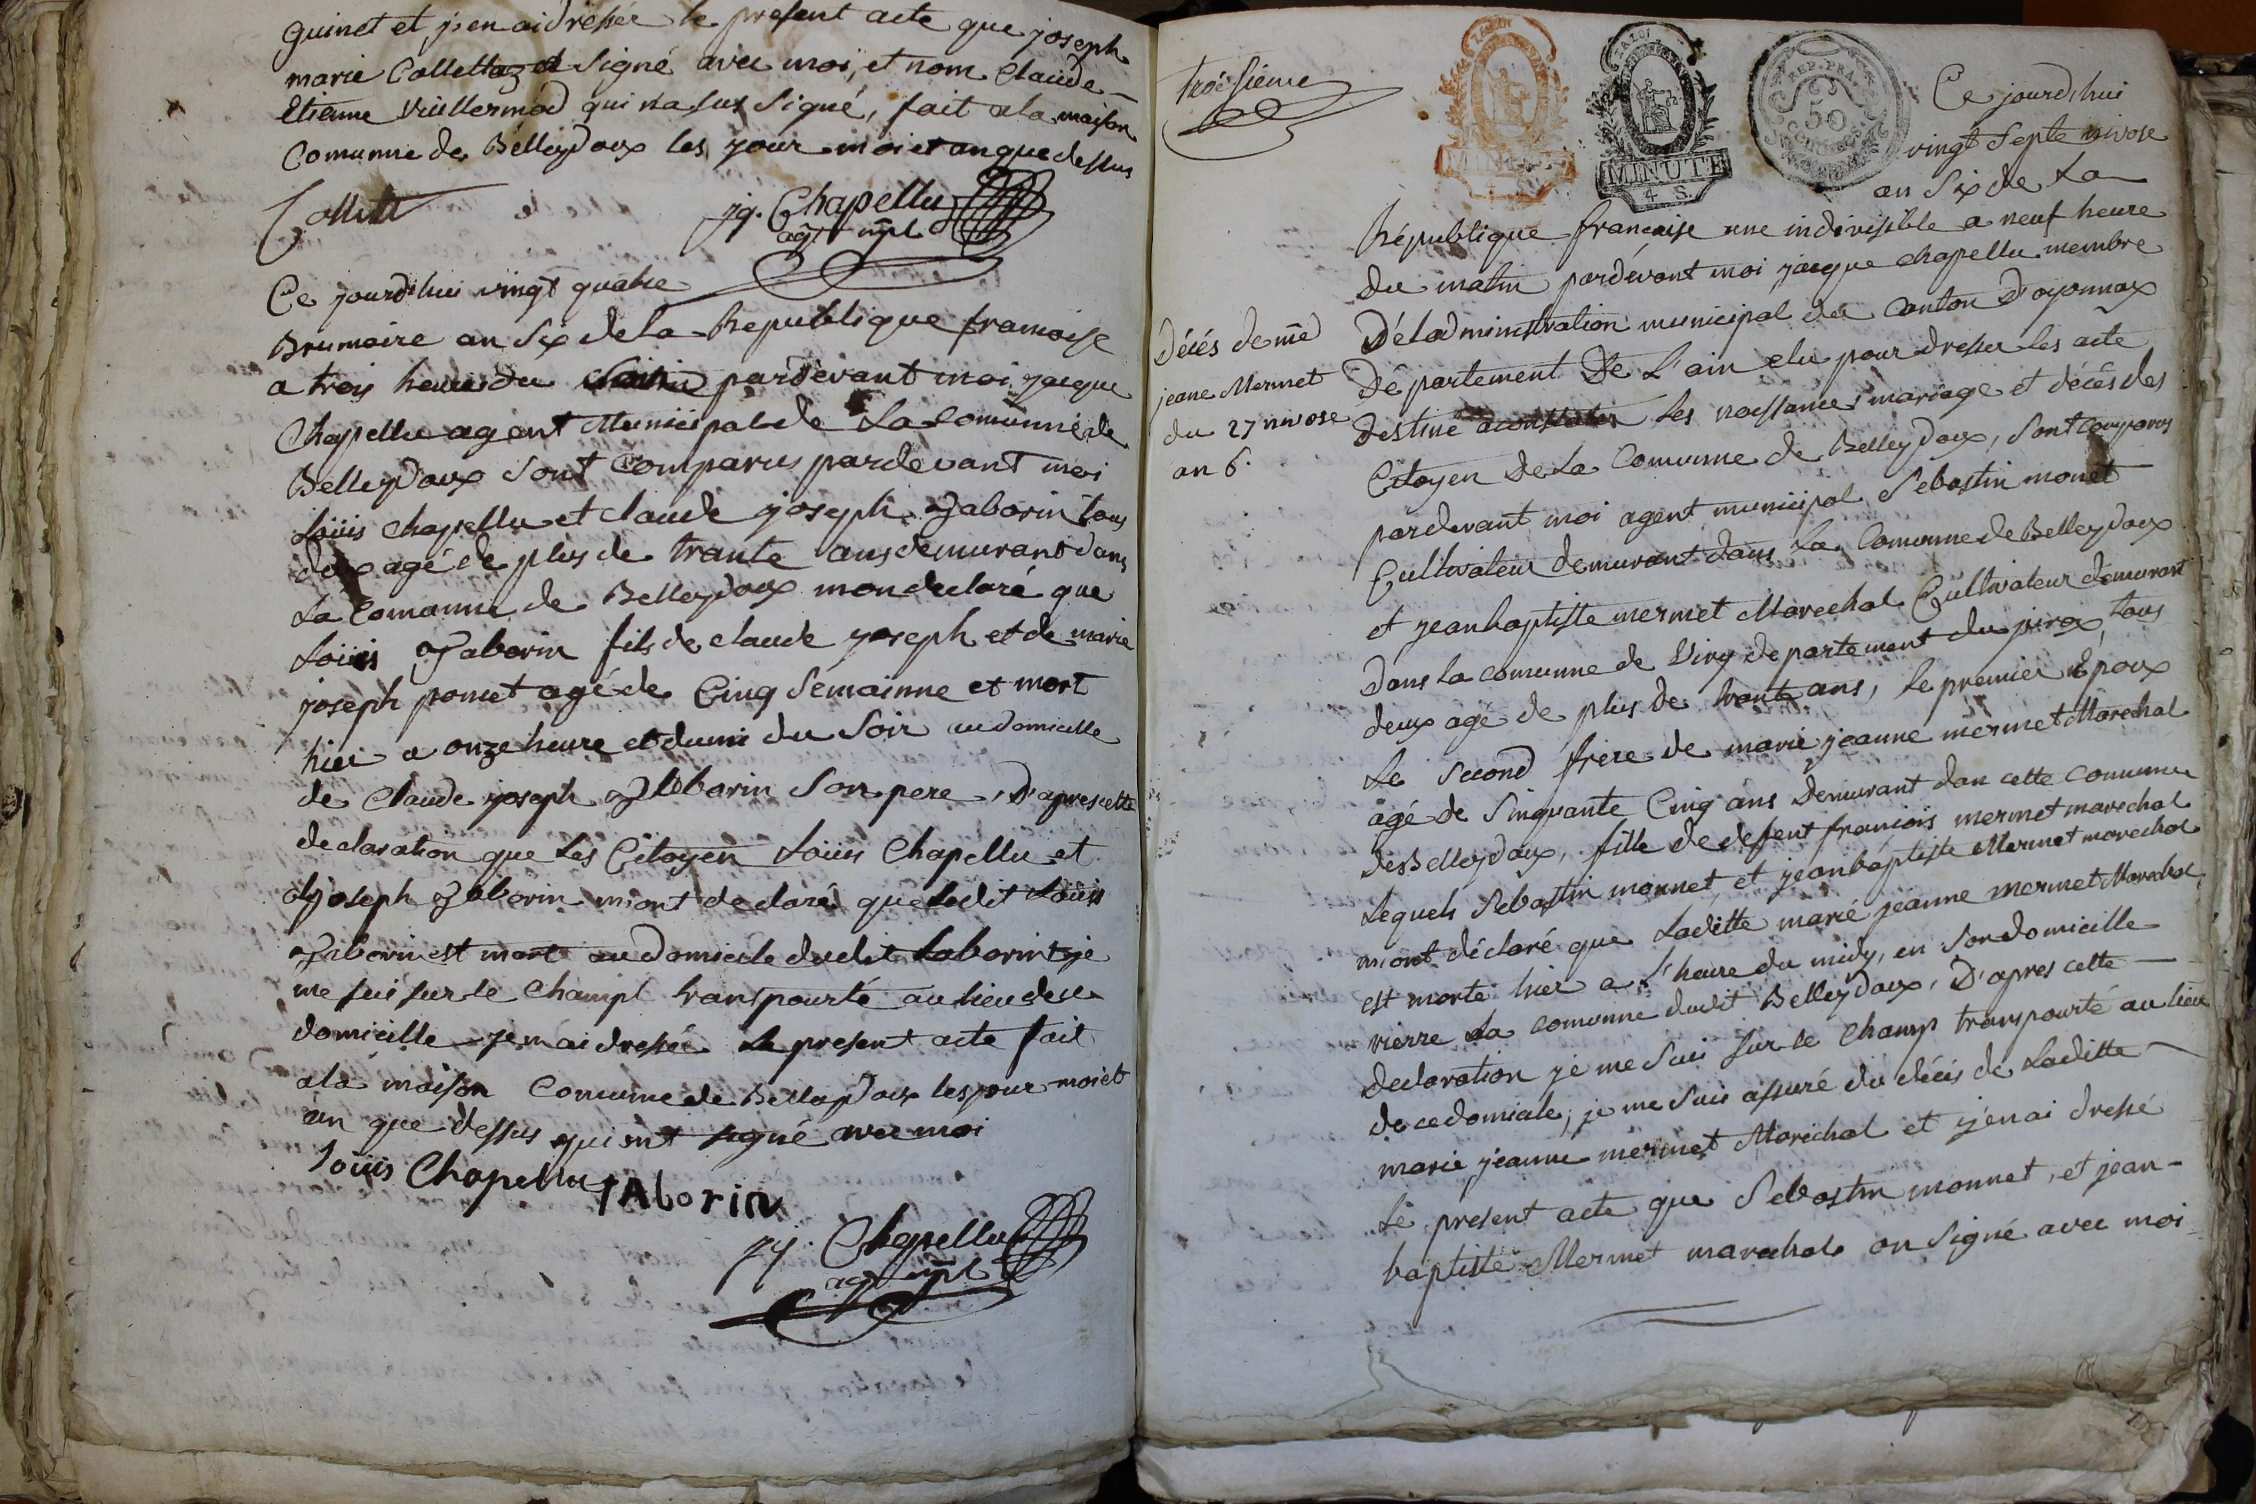 guinet et j'en ai dressée le present acte que joseph
marie Collettaz et Signé avec moi, et nom Claude
Etienne Vuillermod qui na sus Signé, fait a la maison
Comunne de Belleydoux les jour moi et an que dessus
Collett
Jq. Chapellu
agt mpl
Ce jourdhui vingt quatre
Brumaire an Six de la Republique francaise
a trois heures du pardevant moi jacque
Chapellu agent Municipal de La Comunne de
Belleydoux Sont Comparus pardevant moi
Loüis Chapellu et claude joseph Jaborin tous
deux agé de plus de trante ans demurant dans
La Comunne de Belleydoux mon declaré que
Loüis Jaborin fils de claude joseph et de marie
joseph ponet agé de Cinq Semainne et mort
hier a onze heure et dumi du Soir au domicille
de Claude joseph Jaborin Son pere, D'apres cette
declaration que Les Citoyen Loüis Chapellu et
Cl joseph Jaborin m'ont declaré que Ledit Loüis
Jaborin est mort au domicile dudit Laborin je
me suis sur le Champt transpourté au lieu de ce
domicille jen ai dressée Le present acte fait
a la maison Comunne de Belleydoux les jour moi et
an que dessus qui ont signé avec moi
Loüis Chapellu
JAborin
Jq. Chapellu
agt mpl
troisieme
MINUTE
LA LOI
MINUTE
4 S.
REP. FRA.
50
Ce jourdhui
vingt Septe nivose
an Six de La
République francaise une indivisible a neuf heure
Du matin pardevant moi jacque Chapellu membre
De Ladministration municipal du Canton D'oyonnax
Département De L'ain elu pour dresser les acte
Destiné a constater Les naissance mariage et décès des
Citoyen De La Comunne de Belleydoux, Sont Comparus
pardevant moi agent municipal Sebastin monet
Cultivateur demurant dans La Comunne de Belleydoux
et jean baptiste mermet Marechal Cultivateur demurant
Dans la comunne de Viry departement du jirax, tous
deux agé de plus de trante ans, le premier Epoux
Le Second frere de marie jeanne mermet Marechal
agé de Sinquante Cinq ans Demurant dan cette Comunne
de Belleydoux, fille de defent francois mermet marechal
Lequels Sebastin monnet, et jean baptiste Mermet marechal
m'ont déclaré que Laditte marié jeanne mermet Marechal
est morte hier a L'heure du midy, en Son domicille
rierre La comunne dudit Belleydoux, D'apres cette
Declaration je me Suis Sur le Champ transpourté au lieu
de ce domicile, je me Suis assuré du décés de Laditte
marie jeanne mermet Marechal et j'en ai dressé
Le present acte que Sebastin monnet, et jean-
baptiste Mermet marechal on Signé avec moi
Décés de me
jeane Mermet
du 27 nivose
an 6.